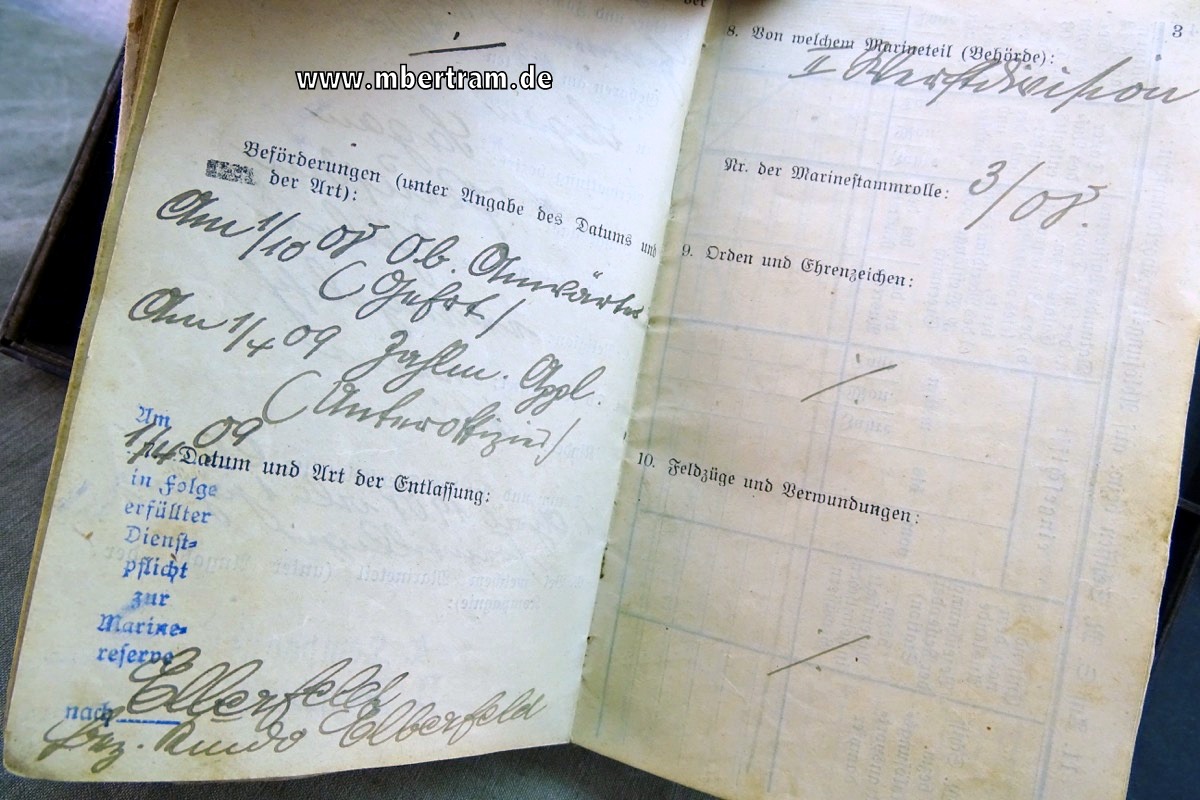 www.mbertram.de
Beförderungen (unter Angabe des Datums und
der Art):
Am 1/10 08 Ob. Anwärter
(Gefrt/
Am 1/4 09 Zahlm. Appl.
(Unteroffizier/
Am
1/4 09
Datum und Art der Entlassung:
in Folge
erfüllter
Dienst-
pflicht
zur
Marine-
reserve
nach Elberfeld
Bez. Kmdo Elberfeld
3
8. Von welchem Marineteil (Behörde):
II Werftdivision
Nr. der Marinestammrolle: 3/08.
9. Orden und Ehrenzeichen:
10. Feldzüge und Verwundungen: